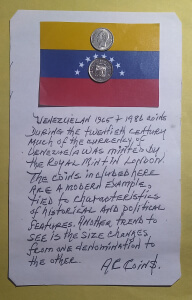 VENEZUELAN 1965 & 1986 COINS
DURING THE TWENTIETH CENTURY
MUCH OF THE CURRENCY OF
VENEZUELA WAS MINTED BY
THE ROYAL MINT IN LONDON.
THE COINS INCLUDED HERE
ARE A MODERN EXAMPLE,
TIED TO CHARACTERISTICS
OF HISTORICAL AND POLITICAL
FEATURES. ANOTHER TREND TO
SEE IS THE SIZE CHANGES,
FROM ONE DENOMINATION TO
THE OTHER